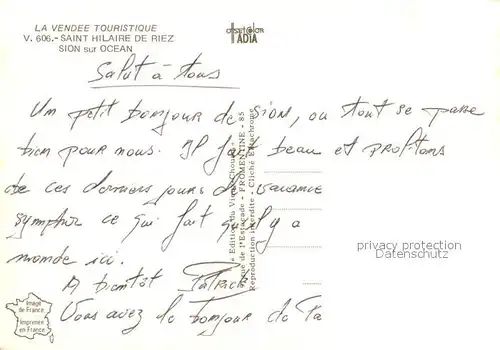 LA VENDEE TOURISTIQUE
V. 606.- SAINT HILAIRE DE RIEZ
SION sur OCEAN
offset color
IADIA
Salut à tous
Un petit bonjour de Sion, ou tout se passe
bien pour nous. Il fait beau et profitons
de ces derniers jours de vacance
ce qui fait qu'il y a
monde ici.
A bientôt Patrick
Vous avez le bonjour de
Editions du Vieux Chouan
rue de l'Estacade - FROMENTINE - 85
Reproduction interdite - Cliché Et Machrone
privacy protection
Datenschutz
Image
de France
Imprimée
en France